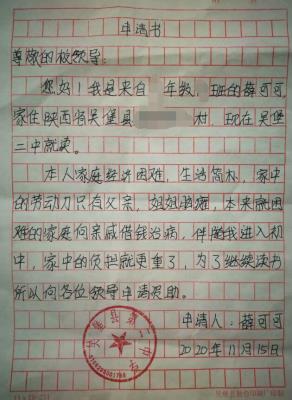 申请书
尊敬的校领导:
您好!我是来自 年级, 班的薛可可
家住陕西省吴堡县 村,现在吴堡
二中就读。
本人家庭经济困难,生活简朴,家中
的劳动力只有父亲,姐姐脑瘫,本来就困
难的家庭向亲戚借钱治病,伴随我进入初
中,家中的负担就更重了,为了继续读书
所以向各位领导申请资助。
申请人:薛可可
2020年11月15日
吴堡县第二中学